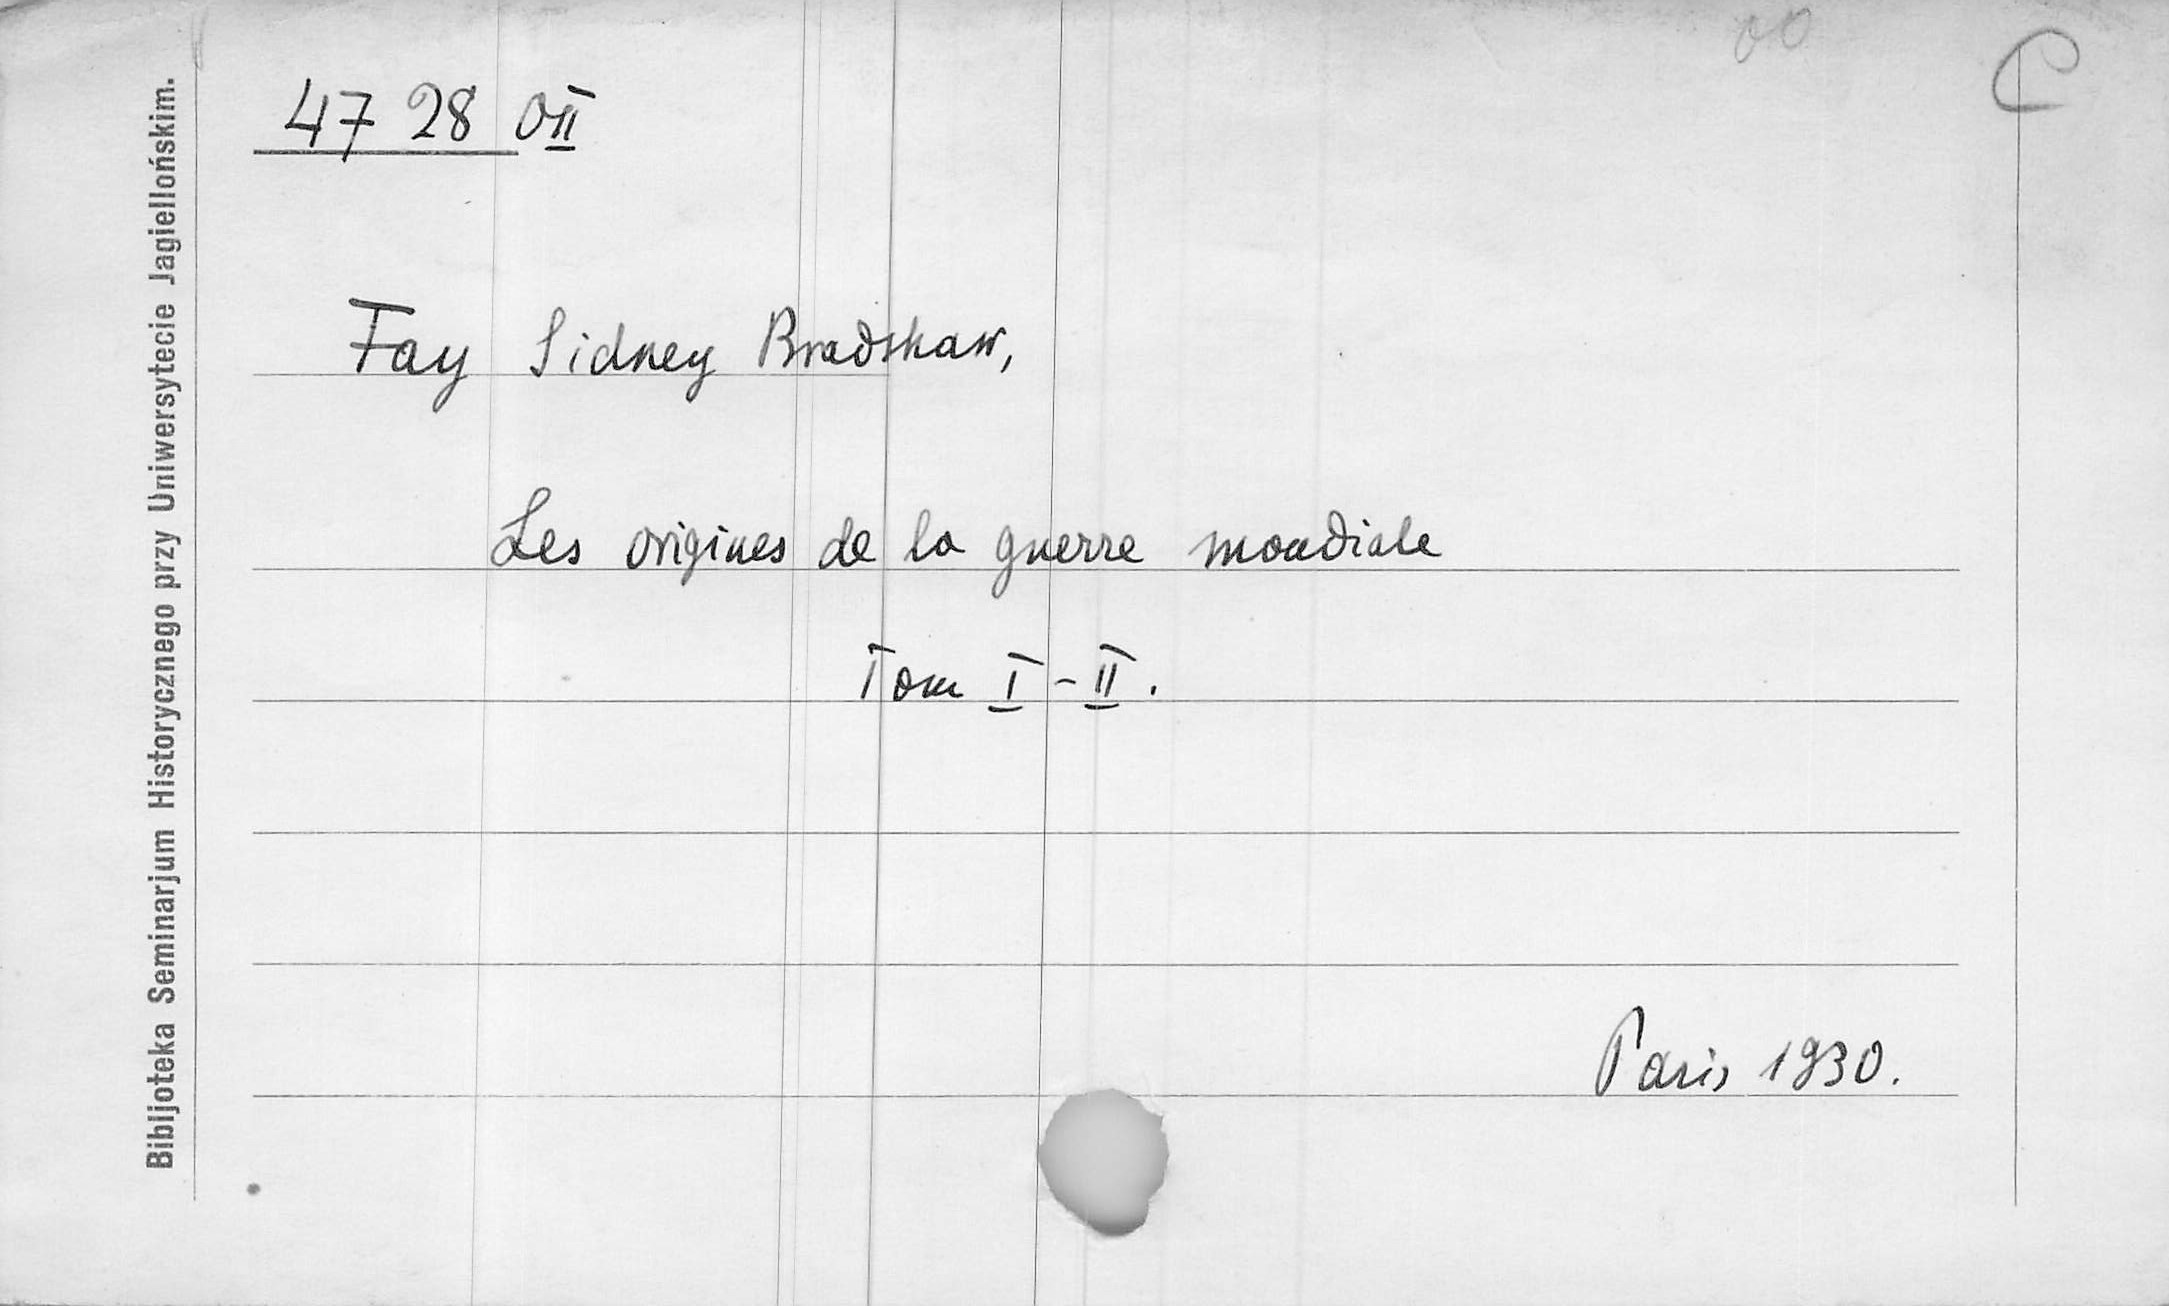 47 28 OII
C
Fay Sidney Bradshaw,
Les origines de la guerre mondiale
Tom I-II.
Paris 1930.
Bibljoteka Seminarjum Historycznego przy Uniwersytecie Jagiellońskim.